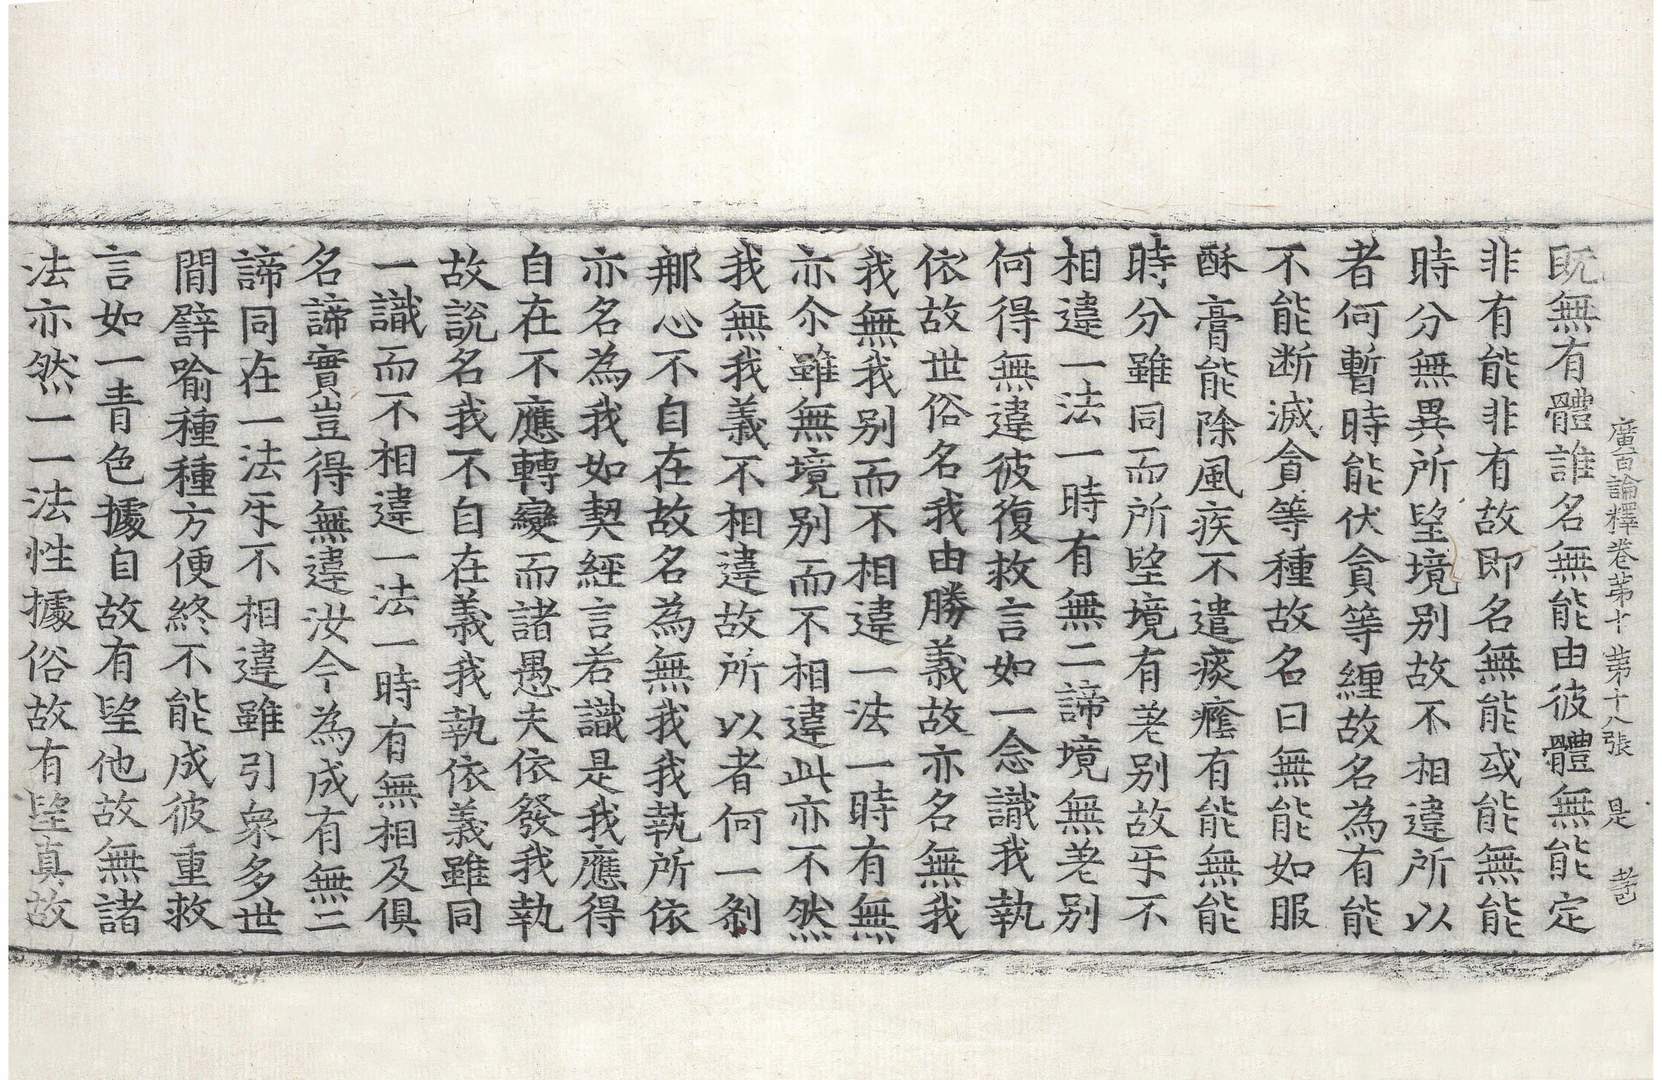 廣百論釋卷第十　第十八張　是
既無有體誰名無能由彼體無能定
非有能非有故即名無能或能無能
時分無異所望境別故不相違所以
者何暫時能伏貪等纏故名為有能
不能断滅貪等種故名曰無能如服
酥膏能除風疾不遣痰癊有能無能
時分雖同而所望境有差別故乎不
相違一法一時有無二諦境無差別
何得無違彼復救言如一念識我執
依故世俗名我由勝義故亦名無我
我無我別而不相違一法一時有無
亦尒雖無境別而不相違此亦不然
我無我義不相違故所以者何一剎
那心不自在故名為無我我執所依
亦名為我如契經言若識是我應得
自在不應轉變而諸愚夫依發我執
故說名我不自在義我執依義雖同
一識而不相違一法一時有無相及俱
名諦實豈得無違汝今為成有無二
諦同在一法乎不相違雖引衆多世
間譬喻種種方便終不能成彼重救
言如一青色據自故有望他故無諸
法亦然一一法性據俗故有望真故